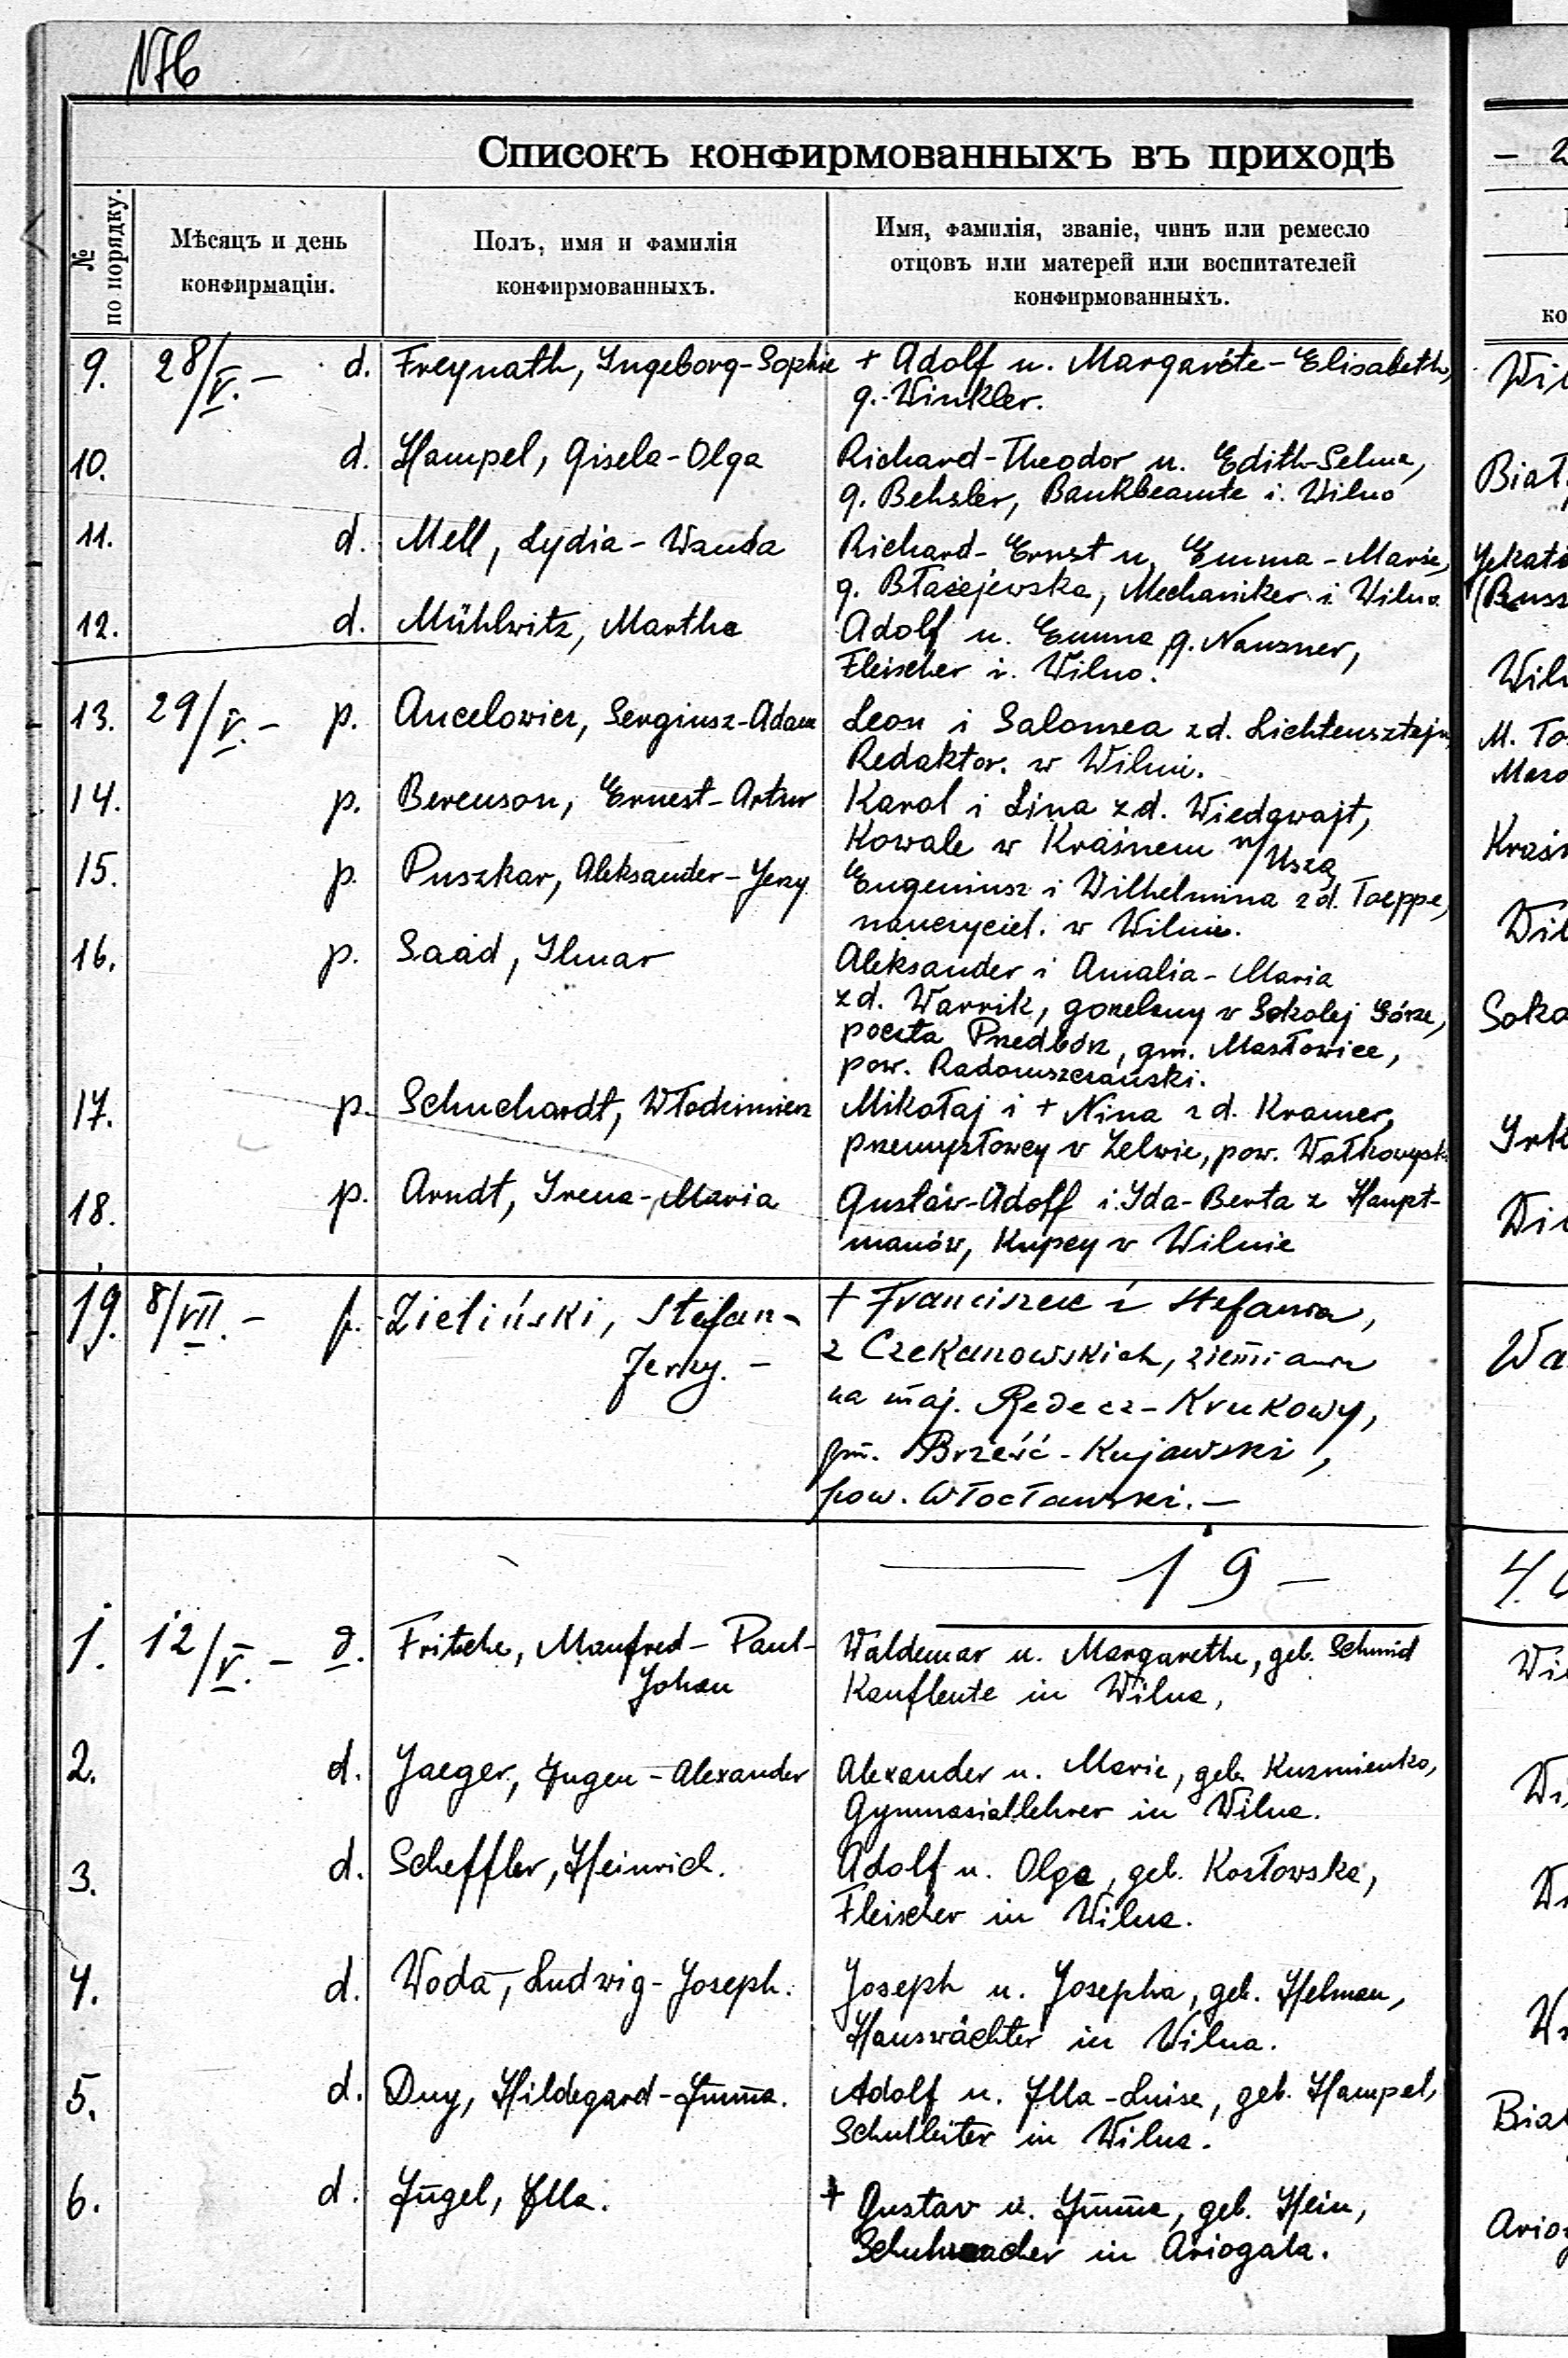 176
Списокъ конфирмованныхъ въ приходѣ
№ по порядку.
Мѣсяцъ и день
конфирмаціи.
Полъ, имя и фамилія
конфирмованныхъ.
Имя, фамилія, званіе, чинъ или ремесло
отцовъ или матерей или воспитателей
конфирмованныхъ.
9. 28/V. - d. Freynath, Ingeborg-Sophie + Adolf u. Margarete-Elisabeth,
g. Winkler.
10. d. Hampel, Gisela-Olga Richard-Theodor u. Edith-Selma,
g. Behsler, Bankbeamte i. Wilno
11. d. Mell, Lydia-Wanda Richard-Ernst u. Emma-Marie,
g. Błażejewska, Mechaniker i. Wilno
12. d. Mühlwitz, Martha Adolf u. Emma g. Nausner,
Fleischer i. Wilno.
13. 29/V. - p. Ancelowicz, Sergiusz-Adam Leon i Salomea z d. Lichtensztejn,
Redaktor. w Wilni.
14. p. Berenson, Ernest-Artur Karol i Lina z d. Wiedgwajt,
Kowale w Kraśnem n/Uszą
15. p. Puszkar, Aleksander-Jerzy Eugeniusz i Wilhelmina z d. Toeppe,
nauczyciel. w Wilnie.
16. p. Saad, Ilmar Aleksander i Amalia-Maria
z d. Warrik, gorzelany w Sokolej Górze,
poczta Przedbórz, gm. Masłowice,
pow. Radomszczański.
17. p. Schuchardt, Włodzimierz Mikołaj i + Nina z d. Kramer,
przemysłowcy w Zelwie, pow. Wołkowysk
18. p. Arndt, Irena-Maria Gustaw-Adolf i Ida-Berta z Haupt-
manów, Kupcy w Wilnie
19. 8/VII. - p. Zieliński, Stefan- + Franciszek i Stefania,
Jerzy. - z Czekanowskich, ziemianie
na maj. Redecz-Krukowy,
gm. Brześć-Kujawski,
pow. Włocławski. -
19 -
1. 12/V. - d. Fritsche, Manfred-Paul- Waldemar u. Margarethe, geb. Schmid
Johan Kaufleute in Wilna,
2. d. Jaeger, Eugen-Alexander Alexander u. Marie, geb. Kuzmienko,
Gymnasiallehrer in Wilna.
3. d. Scheffler, Heinrich. Adolf u. Olga, geb. Kosłowska,
Fleischer in Wilna.
4. d. Woda, Ludwig-Joseph. Joseph u. Josepha, geb. Helman,
Hauswächter in Wilna.
5. d. Duy, Hildegard-Emma. Adolf u. Ella-Luise, geb. Hampel,
Schulleiter in Wilna.
6. d. Engel, Ella. + Gustav u. Emma, geb. Hein,
Schuhmacher in Ariogala.